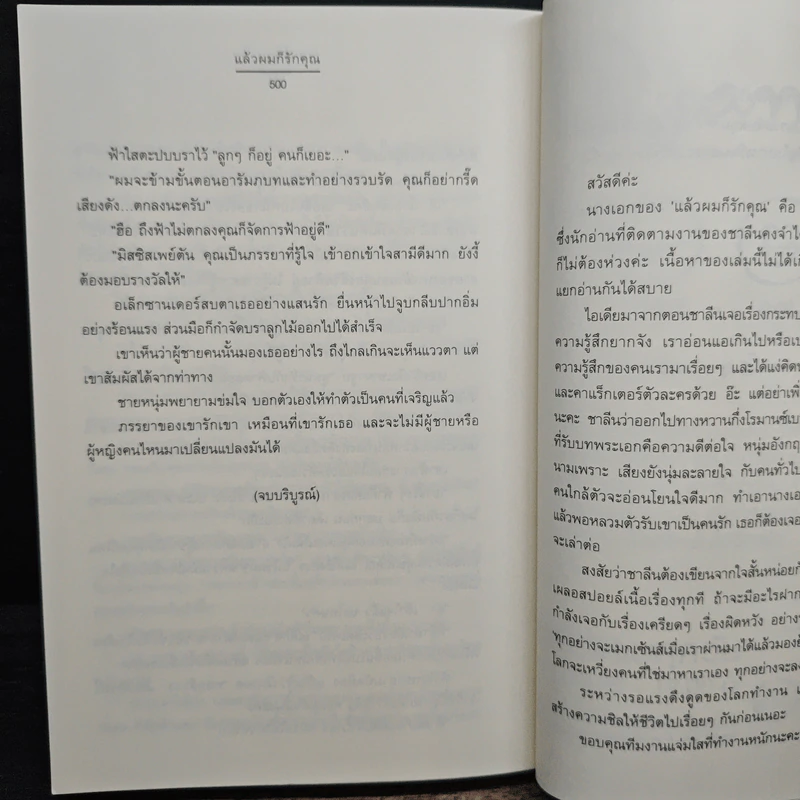 แล้วผมก็รักคุณ
500
ฟ้าใสตะปบบราไว้ "ลูกๆ ก็อยู่ คนก็เยอะ..."
"ผมจะข้ามขั้นตอนอารัมภบทและทำอย่างรวบรัด คุณก็อย่ากรี๊ด
เสียงดัง...ตกลงนะครับ"
"ฮือ ถึงฟ้าไม่ตกลงคุณก็จัดการฟ้าอยู่ดี"
"มิสซิสเพย์ตัน คุณเป็นภรรยาที่รู้ใจ เข้าอกเข้าใจสามีดีมาก ยังงี้
ต้องมอบรางวัลให้"
อเล็กซานเดอร์สบตาเธออย่างแสนรัก ยื่นหน้าไปจูบกลีบปากอิ่ม
อย่างร้อนแรง ส่วนมือก็กำจัดบราลูกไม้ออกไปได้สำเร็จ
เขาเห็นว่าผู้ชายคนนั้นมองเธออย่างไร ถึงไกลเกินจะเห็นแววตา แต่
เขาสัมผัสได้จากท่าทาง
ชายหนุ่มพยายามข่มใจ บอกตัวเองให้ทำตัวเป็นคนที่เจริญแล้ว
ภรรยาของเขารักเขา เหมือนที่เขารักเธอ และจะไม่มีผู้ชายหรือ
ผู้หญิงคนไหนมาเปลี่ยนแปลงมันได้
(จบบริบูรณ์)
สวัสดีค่ะ
นางเอกของ 'แล้วผมก็รักคุณ' คือ
ซึ่งนักอ่านที่ติดตามงานของชาลีนคงจำได้
ก็ไม่ต้องห่วงค่ะ เนื้อหาของเล่มนี้ไม่ได้เกี่
แยกอ่านกันได้สบาย
ไอเดียมาจากตอนชาลีนเจอเรื่องกระทบ
ความรู้สึกยากจัง เราอ่อนแอเกินไปหรือเ
ความรู้สึกของคนเรามาเรื่อยๆ และได้แง่คิด
และคาแร็กเตอร์ตัวละครด้วย อ๊ะ แต่อย่าเพิ่
นะคะ ชาลีนว่าออกไปทางหวานกึ่งโรมานซ์เบา
ที่รับบทพระเอกคือความดีต่อใจ หนุ่มอังกฤ
นามเพราะ เสียงยังนุ่มละลายใจ กับคนทั่วไป
คนใกล้ตัวจะอ่อนโยนใจดีมาก ทำเอานางเอ
แล้วพอหลวมตัวรับเขาเป็นคนรัก เธอก็ต้องเจอ
จะเล่าต่อ
สงสัยว่าชาลีนต้องเขียนจากใจสั้นหน่อย
เผลอสปอยล์เนื้อเรื่องทุกที ถ้าจะมีอะไรฝาก
กำลังเจอกับเรื่องเครียดๆ เรื่องผิดหวัง อย่าง
ทุกอย่างจะเมกเซ้นส์เมื่อเราผ่านมาได้แล้วมองย้
โลกจะเหวี่ยงคนที่ใช่มาหาเราเอง ทุกอย่างจะลง
ระหว่างรอแรงดึงดูดของโลกทำงาน เ
สร้างความชิลให้ชีวิตไปเรื่อยๆ กันก่อนเนอะ
ขอบคุณทีมงานแจ่มใสที่ทำงานหนักนะคะ